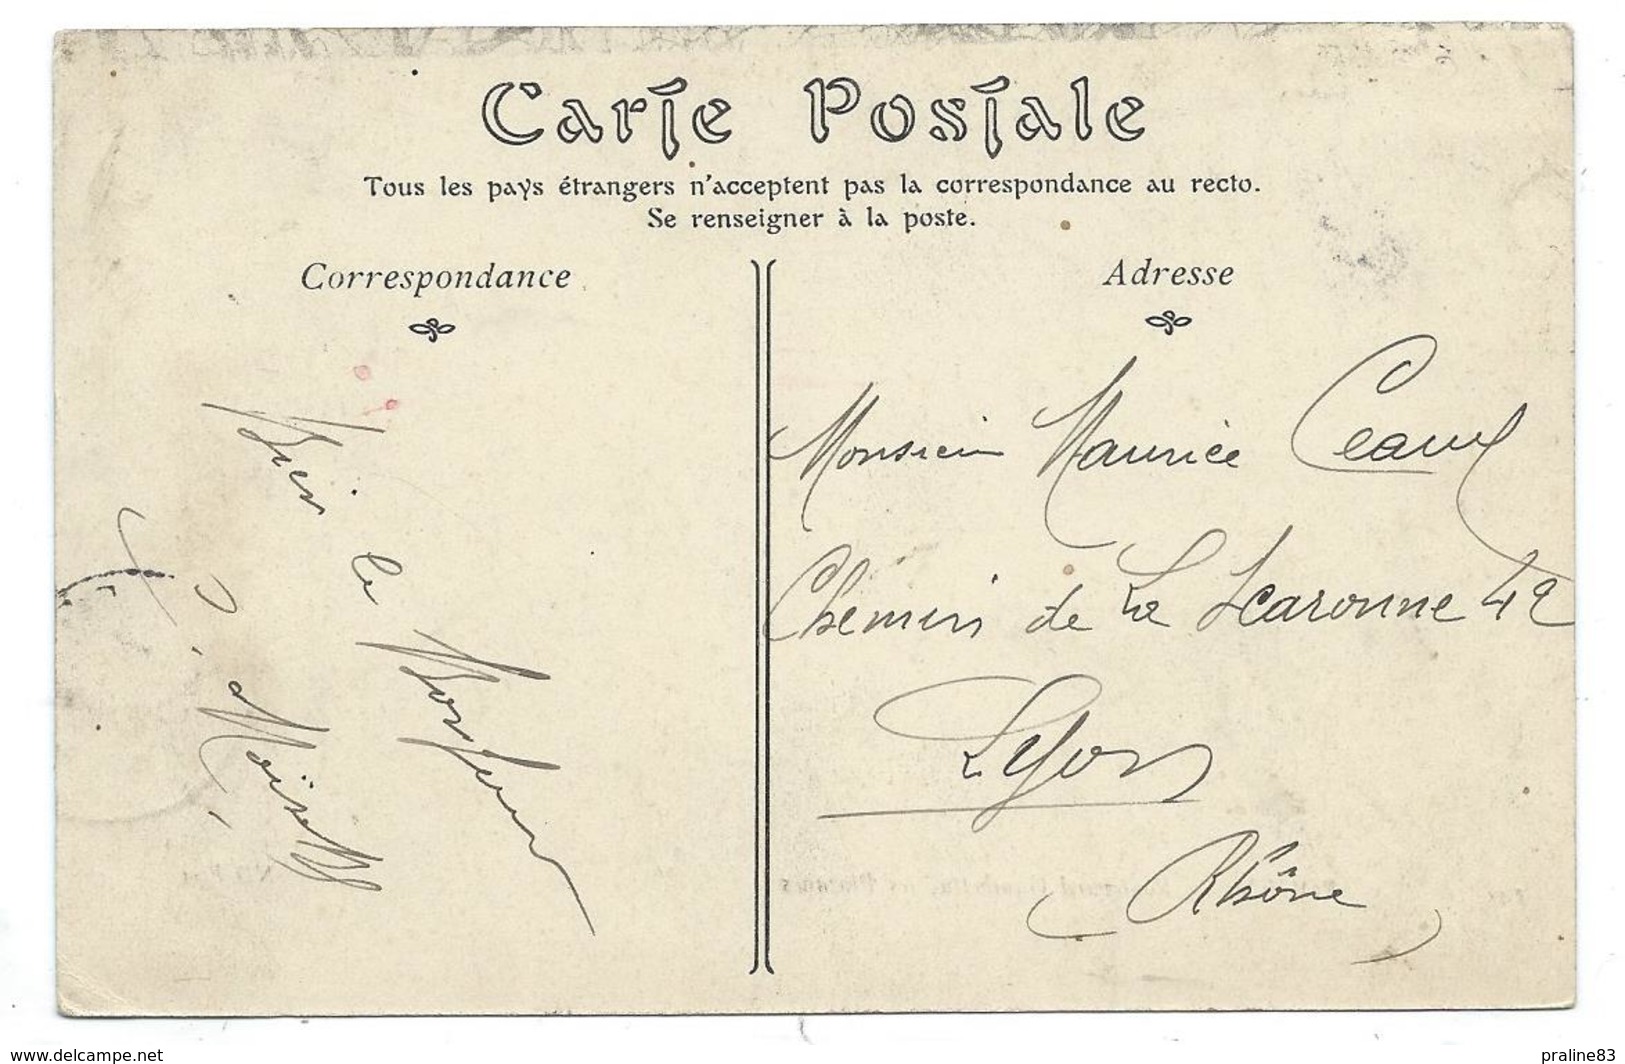 Carte Postale
Tous les pays étrangers n'acceptent pas la correspondance au recto.
Se renseigner à la poste.
Correspondance
Adresse
Bien le
Bonjour
Monsieur Maurice
Chemin de La Scaronne 42
Lyon
(Rhône)
www.delcampe.net
praline83